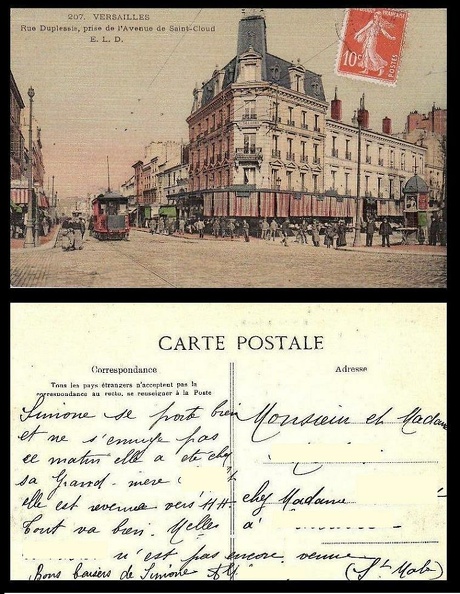 207. VERSAILLES
Rue Duplessis, prise de l'Avenue de Saint-Cloud
E. L. D.
10c
POSTES
CARTE POSTALE
Correspondance
Adresse
Tous les pays étrangers n'acceptent pas la
correspondance au recto, se renseigner à la Poste
Simone se porte bien
et ne s'ennuye pas
ce matin elle a été chez
sa Grand-mère
elle est revenue vers
Tout va bien.
n'est pas encore venue
Bons baisers de Simone
Monsieur et Madame
chez Madame
à
(St Malo)